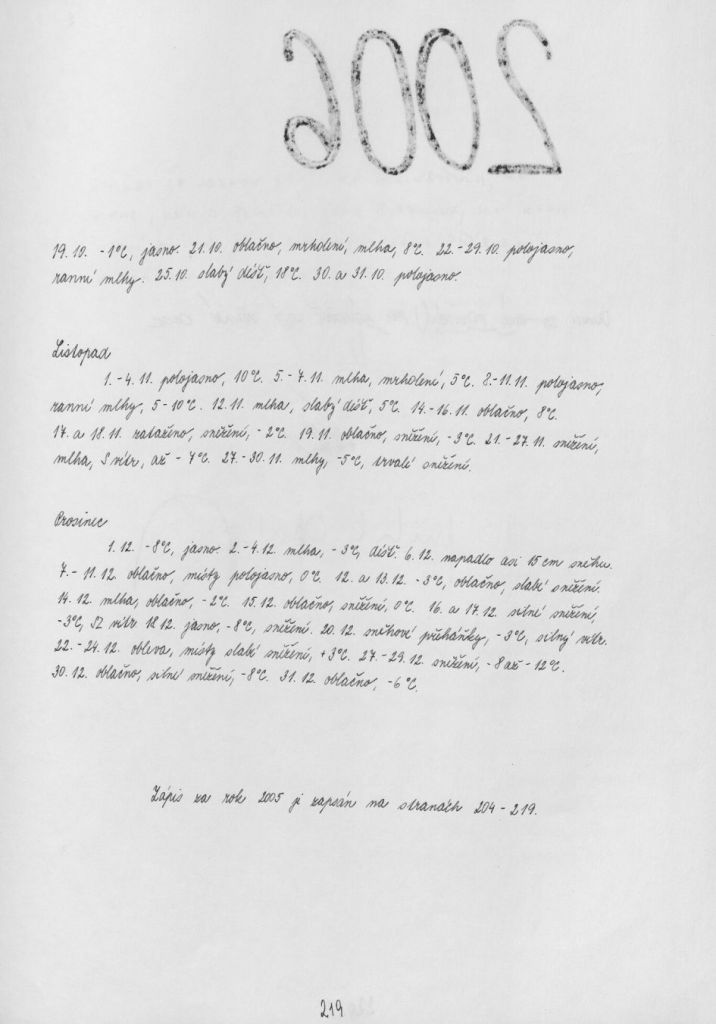 2006
19.10. -1°C, jasno. 21.10. oblačno, mrholení, mlha, 8°C. 22.-29.10. polojasno,
ranní mlhy. 25.10. slabý déšť, 18°C. 30. a 31.10. polojasno.
Listopad
1.-4.11. polojasno, 10°C. 5.-7.11. mlha, mrholení, 5°C. 8.-11.11. polojasno,
ranní mlhy, 5-10°C. 12.11. mlha, slabý déšť, 5°C. 14.-16.11. oblačno, 8°C.
17. a 18.11. zataženo, sněžení, -2°C. 19.11. oblačno, sněžení, -3°C. 21.-27.11. sněžení,
mlha, S vítr, až -7°C. 27.-30.11. mlhy, -5°C, trvalé sněžení.
Prosinec
1.12. -8°C, jasno. 2.-4.12. mlha, -3°C, déšť. 6.12. napadlo asi 15 cm sněhu.
7.-11.12. oblačno, místy polojasno, 0°C. 12. a 13.12. -3°C, oblačno, slabé sněžení.
14.12. mlha, oblačno, -2°C. 15.12. oblačno, sněžení, 0°C. 16. a 17.12. silné sněžení,
-3°C, SZ vítr. 18.12. jasno, -8°C, sněžení. 20.12. sněhové přeháňky, -3°C, silný vítr.
22.-24.12. obleva, místy slabé sněžení, +3°C. 27.-29.12. sněžení, -8 až -12°C.
30.12. oblačno, silné sněžení, -8°C. 31.12. oblačno, -6°C.
Zápis za rok 2005 je zapsán na stranách 204-219.
219